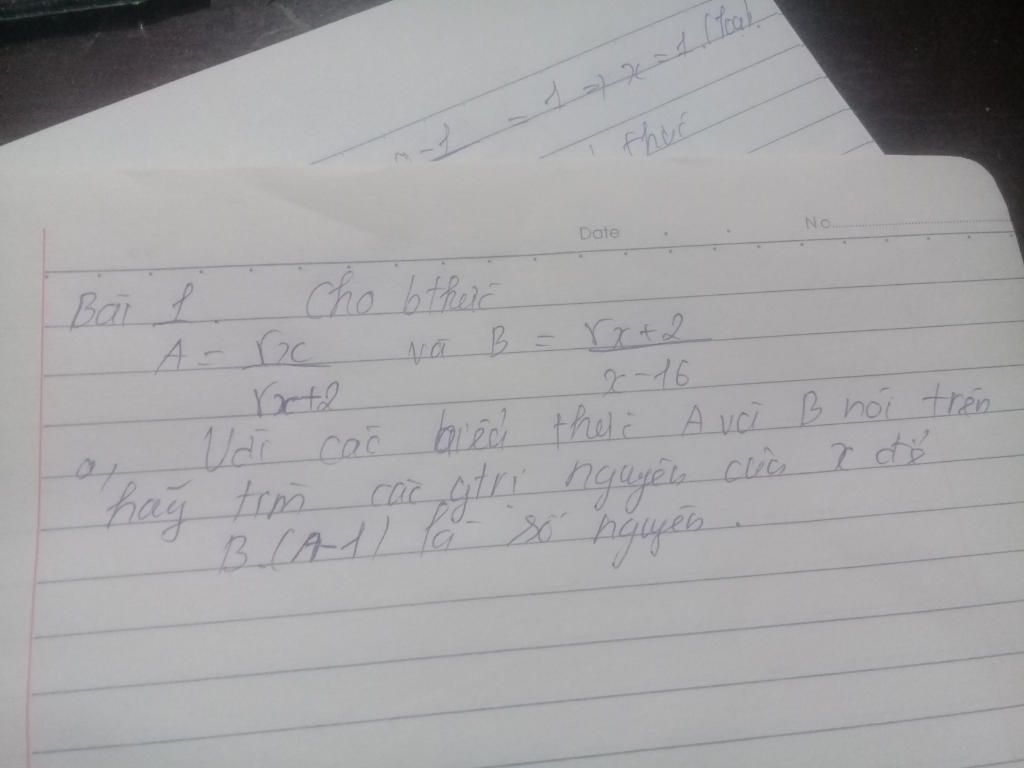 - 1 = 1 => x = 1 (loại).
thức
Date No.
Bài 1. Cho bthức
A = √x / √x+2 và B = √x+2 / x-16
a, Với các biểu thức A và B nói trên
hãy tìm các gtrị nguyên của x để
B.(A-1) là số nguyên.